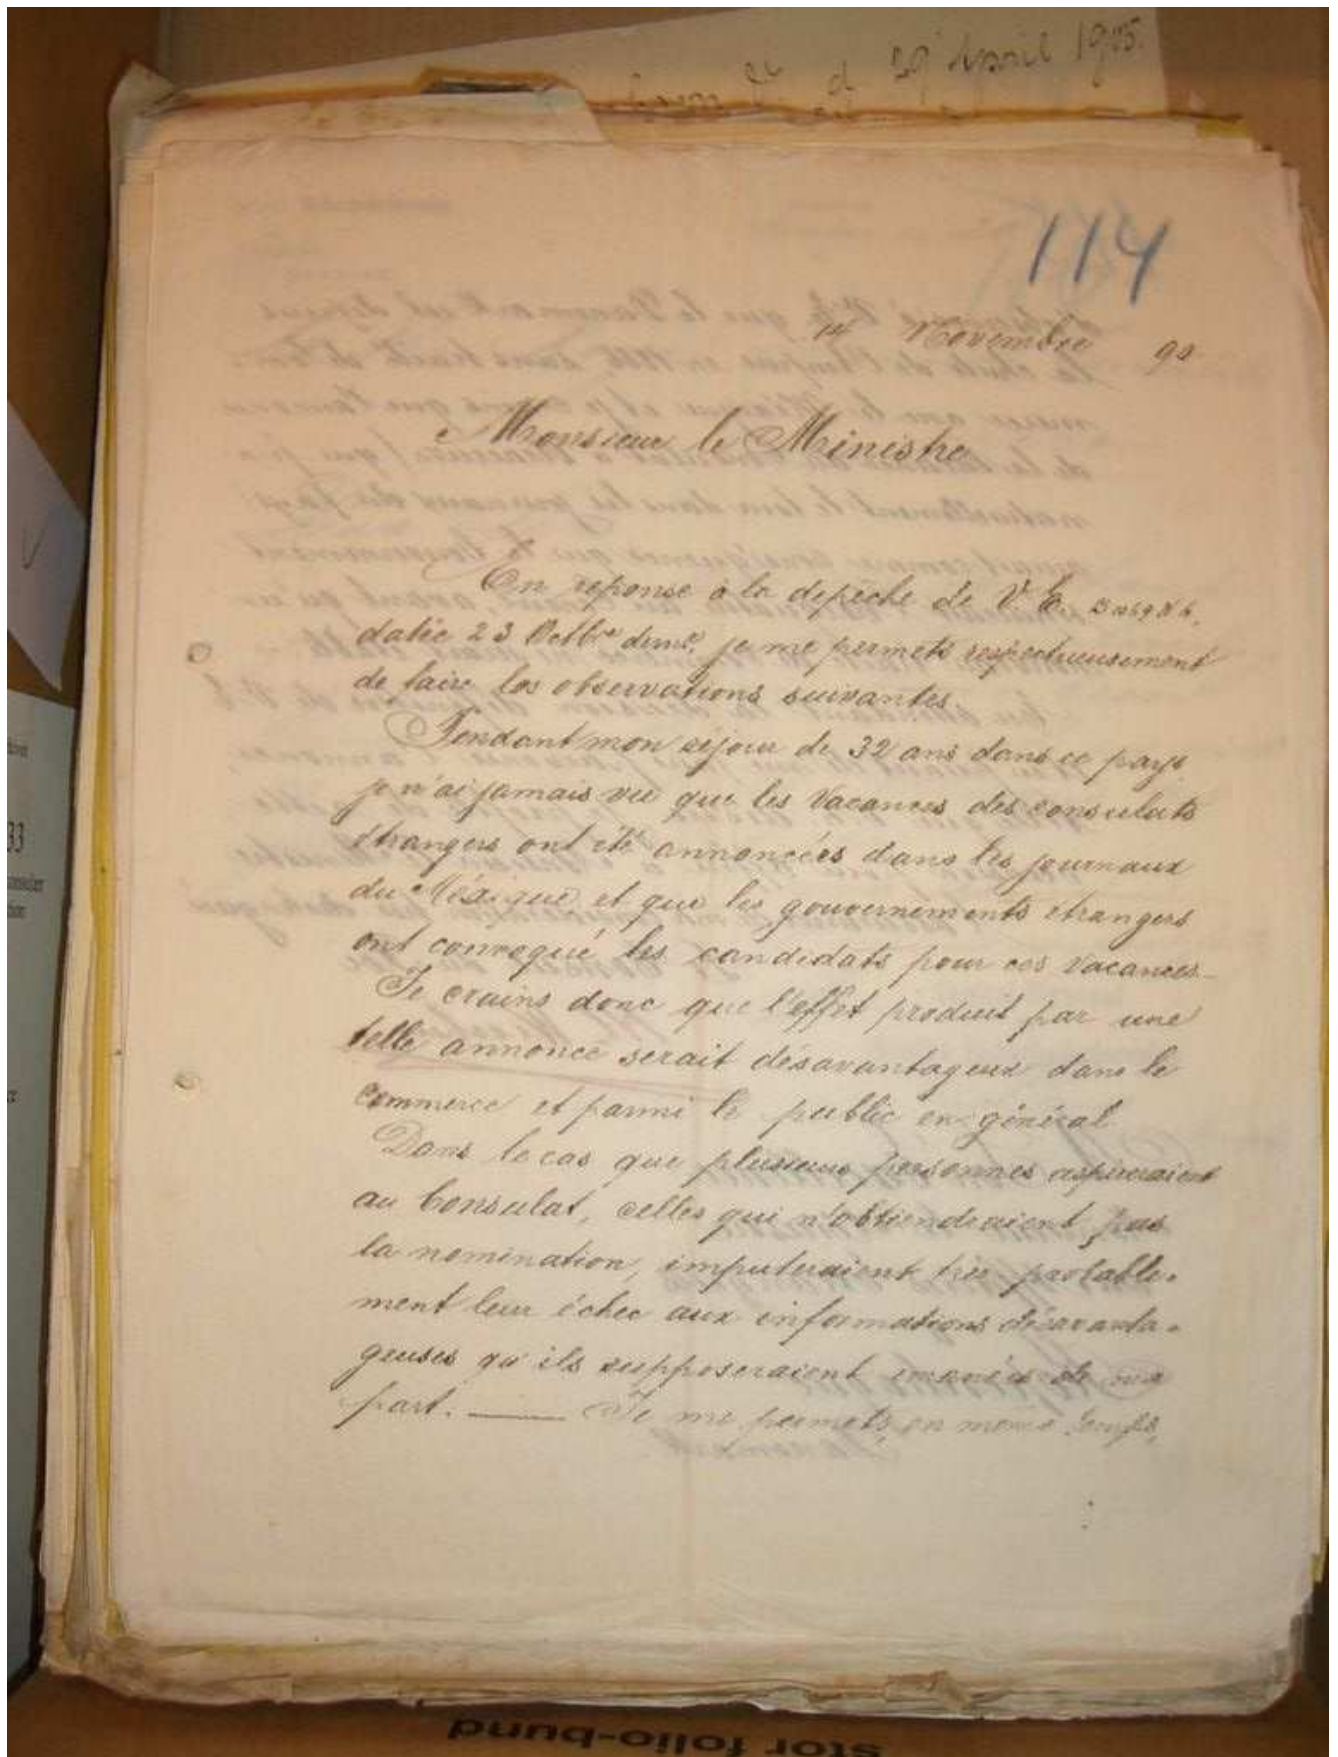 29 April 1905.
114
14 Novembre 90
Monsieur le Ministre
En reponse à la depêche de V. E.
datée 23 Octbre dern. je me permets respectueusement
de faire les observations suivantes
Pendant mon sejour de 32 ans dans ce pays
je n'ai jamais vu que les vacances des consulats
étrangers ont été annoncées dans les journaux
du Méxique et que les gouvernements etrangers
ont convoqué les candidats pour ces vacances.
Je crains donc que l'effet produit par une
telle annonce serait désavantageux dans le
commerce et parmi le public en général
Dans le cas que plusieurs personnes aspireraient
au Consulat, celles qui n'obtiendraient pas
la nomination, imputeraient très probable-
ment leur échec aux informations désavanta-
geuses qu'ils supposeraient emanées de ma
part. — Je me permets, en meme temps,
33
stor folio-bund